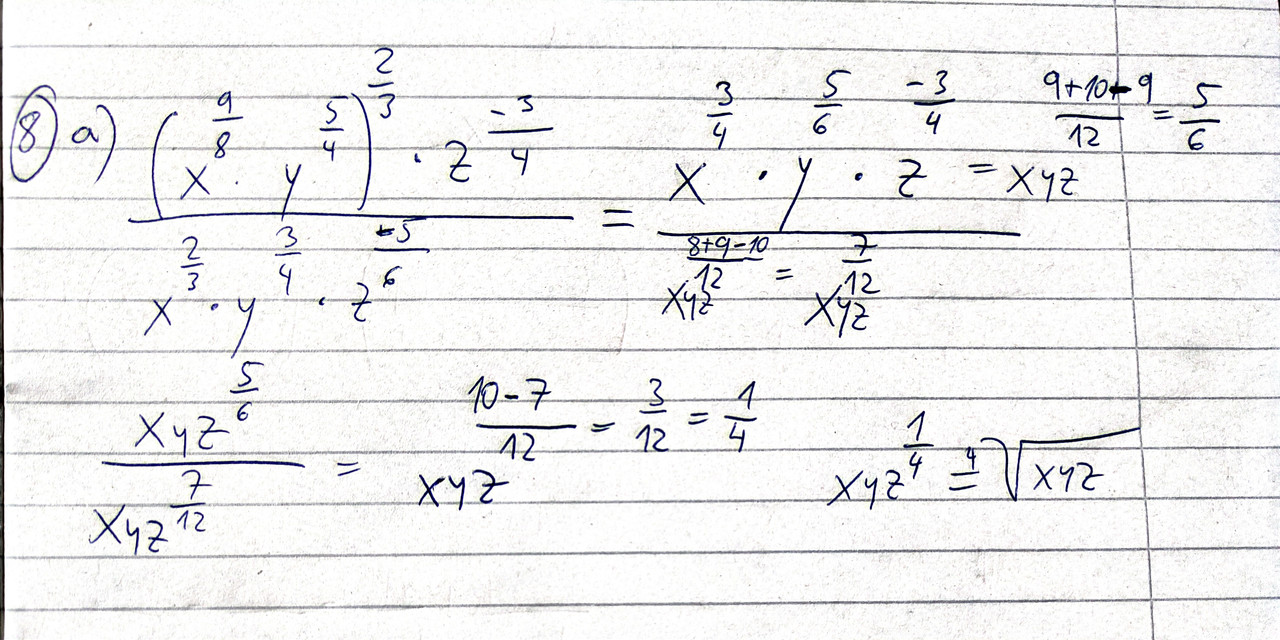 8) a) (x^(9/8) · y^(5/4))^(2/3) · z^(-3/4) / (x^(2/3) · y^(3/4) · z^(-5/6)) = x^(3/4) · y^(5/6) · z^(-3/4) = xyz^((9+10-9)/12 = 5/6) / (xyz^((8+9-10)/12) = xyz^(7/12))
xyz^(5/6) / xyz^(7/12) = xyz^((10-7)/12 = 3/12 = 1/4) xyz^(1/4) = ⁴√(xyz)